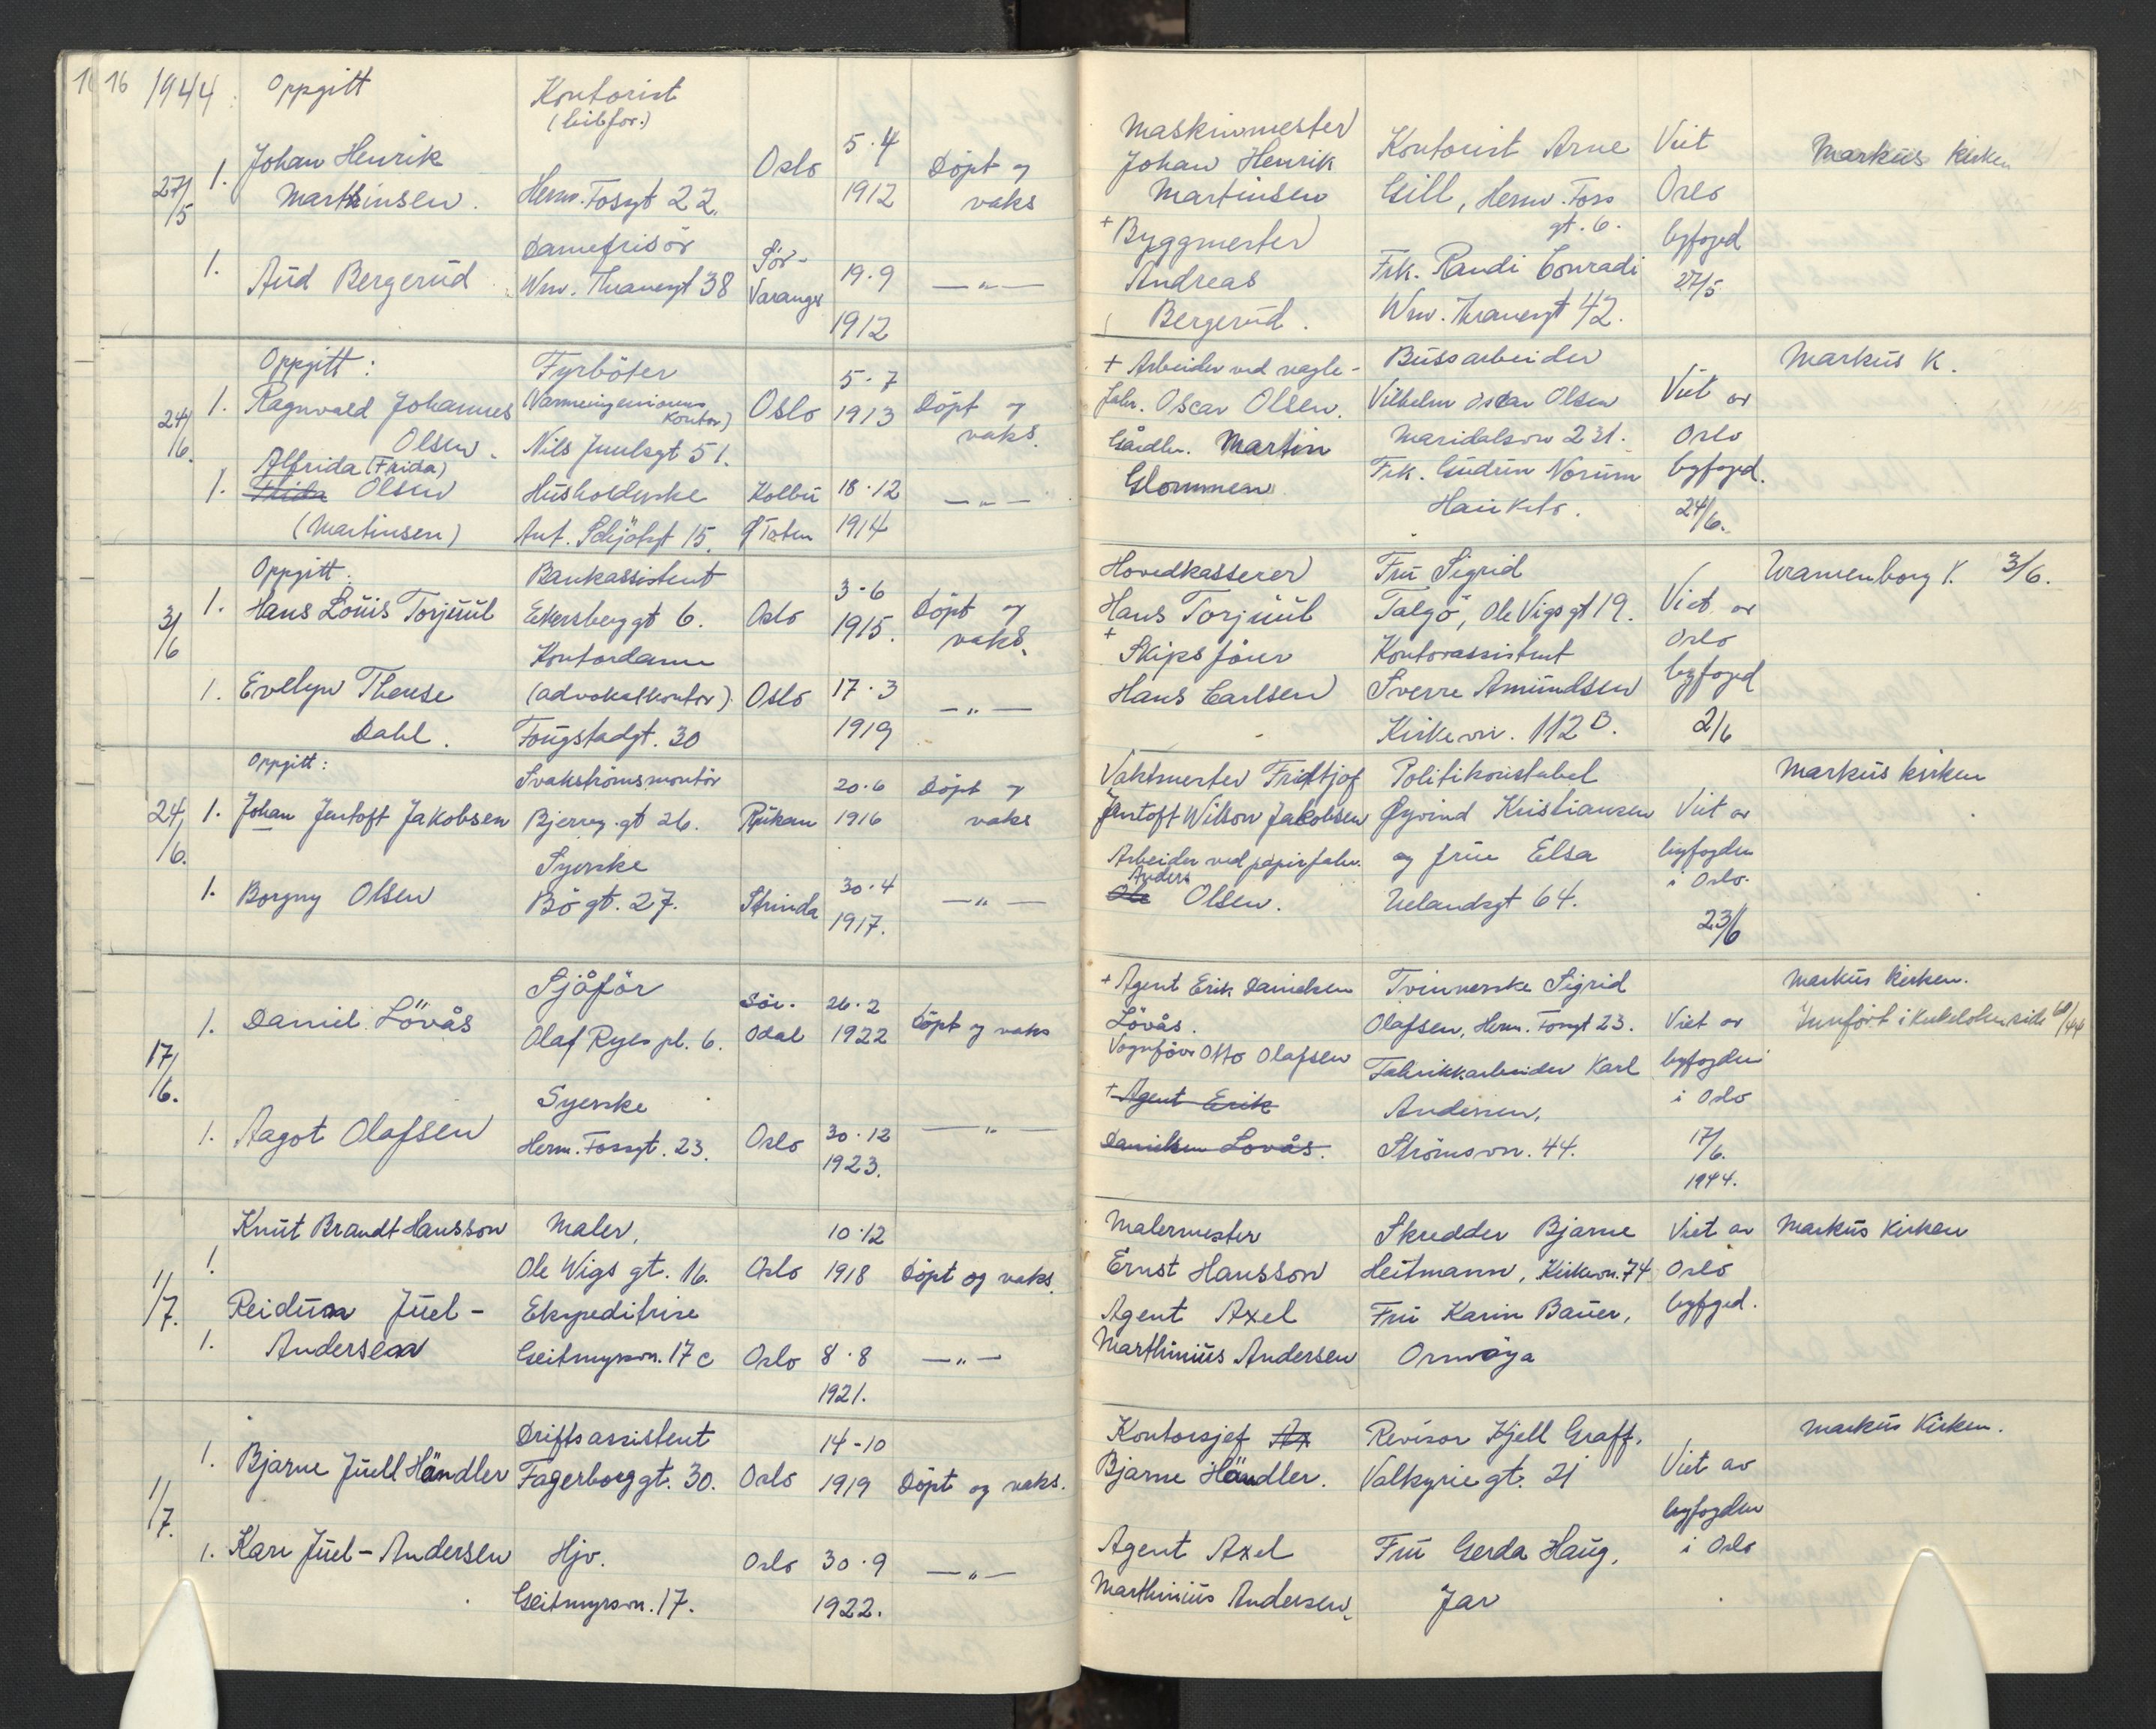 16 1944 Oppgitt Kontorist
27/5 1. Johan Henrik Oslo 5.4 Döpt og
Marthinsen. Herm. Fossgt 22. 1912 vaks
Damefrisör
1. Aud Bergerud Wm. Thranesgt 38 Sör-Varanger 19.9 —„—
1912
Oppgitt: Fyrböter
24/6. 1. Ragnvald Johannes Oslo 5.7 1913 Döpt og
Olsen. Nils Juulsgt 51. vaks.
Alfrida (Frida)
1. Olsen Husholderske Kolbu 18.12 —„—
(Martinsen) Ant. Schjötsgt 15. Ø Toten 1914
Oppgitt. Bankassistent
3/6 1. Hans Louis Torjuul Eckersberggt 6. Oslo 3.6 1915. Döpt og
Kontordame vaks.
1. Evelyn Therese (advokatkontor) Oslo 17.3 —„—
Dahl. Fougstadgt. 30 1919
Oppgitt: Svakströmsmontör 20.6 Döpt og
24/6. 1. Johan Jentoft Jakobsen Bjerreg.gt 26. Rjukan 1916 vaks
Syerske
1. Borgny Olsen Bö gt. 27. Strinda 30.4 —„—
1917.
Sjåför
1. Daniel Lövås Olaf Ryes pl. 6. Sör-Odal 26.2 1922 Döpt og vaks
17/6.
Syerske
1. Aagot Olafsen Herm. Fossgt. 23. Oslo 30.12 —„—
1923.
Knut Brandt Hansson Maler, 10.12
1/7. 1. Ole Wigs gt. 16. Oslo 1918 Döpt og vaks.
Reidun Juel- Ekspeditrise
1. Andersen Geitmyrsvn. 17 c Oslo 8.8 —„—
1921.
Driftsassistent 14-10
1. Bjarne Juell Händler Fagerborggt. 30. Oslo 1919 Döpt og vaks.
1/7.
1. Kari Juel-Andersen Hjv. Oslo 30.9 —„—
Geitmyrsvn. 17. 1922.
Maskinmester
Johan Henrik Kontorist Arne Viet Markus kirken
Martinsen Gill, Herm. Foss Oslo
+ Byggmester gt. 6. byfoged
Andreas Frk. Randi Conradi 27/5
Bergerud. Wm. Thranesgt 42.
+ Arbeider ved nagle- Bussarbeider Markus K.
fabr. Oscar Olsen. Vilhelm Oscar Olsen Viet av
Gårdbr. Martin Maridalsvn 231. Oslo
Glommen Frk. Gudrun Norum byfoged.
Hauketo. 24/6.
Hovedkasserer Fru Sigrid Uranienborg K. 3/6.
Hans Torjuul Talgö, Ole Vigsgt 19. Viet av
+ Skipsförer Kontorassistent Oslo
Hans Carlsen Sverre Amundsen byfoged
Kirkevn. 112 B. 2/6
Vaktmester Fridtjof Politikonstabel Markus kirken
Jentoft Wilson Jakobsen Øyvind Kristiansen Viet av
Arbeider ved papirfabr. og frue Elsa byfogden
Anders i Oslo.
Ole Olsen. Uelandsgt 64. 23/6
+ Agent Erik Danielsen Tvinnerske Sigrid Markus kirken.
Lövås. Olafsen, Herm. Fossgt 23. Viet av
Vognförer Otto Olafsen Fabrikkarbeider Karl byfogden
+ Agent Erik Andersen, i Oslo
Danielsen Lovås. Strömsvn. 44. 17/6.
1944.
Malermester Skredder Bjarne Viet av Markus Kirken
Ernst Hansson Heitmann, Kirkevn. 74 Oslo
Agent Axel Fru Karin Bauer, byfged.
Marthinius Andersen Ormöya
Kontorsjef Ax Revisor Kjell Graff. Markus Kirken.
Bjarne Händler. Valkyriegt. 21 Viet av
byfogden
Agent Axel Fru Gerda Haug, i Oslo
Marthinius Andersen. Jar